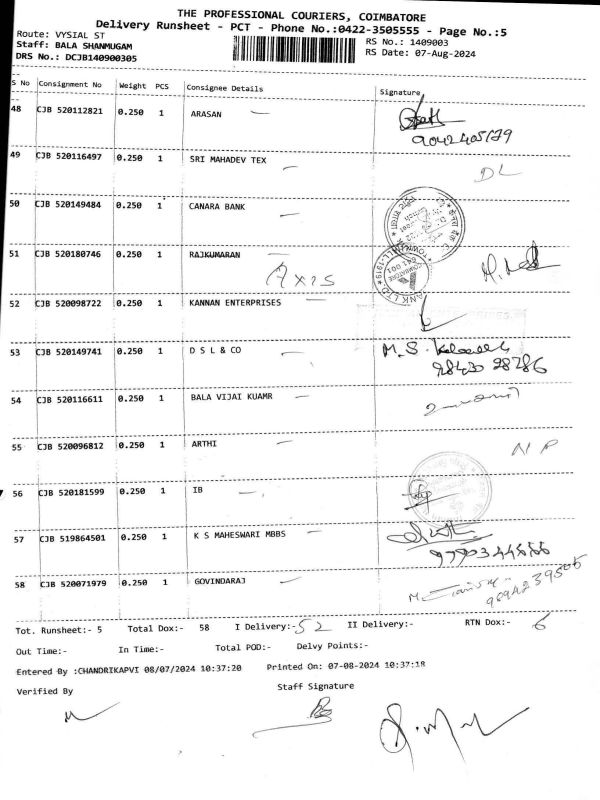 THE PROFESSIONAL COURIERS, COIMBATORE
Delivery Runsheet - PCT - Phone No.:0422-3505555 - Page No.:5
Route: VYSIAL ST RS No.: 1409003
Staff: BALA SHANMUGAM RS Date: 07-Aug-2024
DRS No.: DCJB140900305
S No Consignment No Weight PCS Consignee Details Signature
48 CJB 520112821 0.250 1 ARASAN
49 CJB 520116497 0.250 1 SRI MAHADEV TEX DL
50 CJB 520149484 0.250 1 CANARA BANK
51 CJB 520180746 0.250 1 RAJKUMARAN
Axis
52 CJB 520098722 0.250 1 KANNAN ENTERPRISES
53 CJB 520149741 0.250 1 D S L & CO M.S.
98430 28786
54 CJB 520116611 0.250 1 BALA VIJAI KUAMR
55 CJB 520096812 0.250 1 ARTHI NP
56 CJB 520181599 0.250 1 IB
57 CJB 519864501 0.250 1 K S MAHESWARI MBBS
58 CJB 520071979 0.250 1 GOVINDARAJ
Tot. Runsheet:- 5 Total Dox:- 58 I Delivery:- 52 II Delivery:- RTN Dox:- 6
Out Time:- In Time:- Total POD:- Delvy Points:-
Entered By :CHANDRIKAPVI 08/07/2024 10:37:20 Printed On: 07-08-2024 10:37:18
Verified By Staff Signature